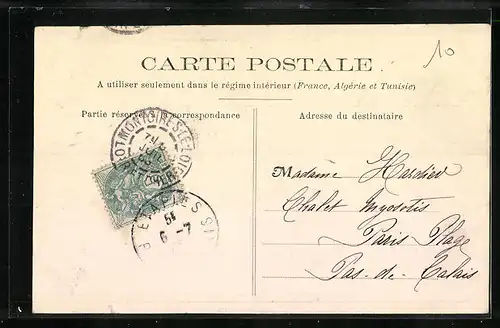 10
CARTE POSTALE
A utiliser seulement dans le régime intérieur (France, Algérie et Tunisie)
Partie réservée à la correspondance
Adresse du destinataire
Madame Hardieu
Chalet Myosotis
Paris Plage
Pas-de-Calais
6-7